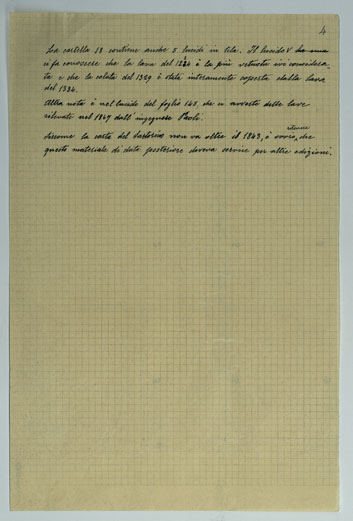 4
La cartella 18 contiene anche 5 lucidi in tela. Il lucido V
ci fa conoscere che la lava del è la più vetusta ivi considera-
ta e che la colata del 1329 è stata interamente coperta dalla lava
del 1334.
Altra nota è nel lucido del foglio 145, che ci avverte delle lave
rilevate nel 1847 dall'ingegnere Paoli.
Siccome la carta del Sartorius non va oltre il 1843, è ovvio ritenere che
questo materiale di data posteriore doveva servire per altre edizioni.